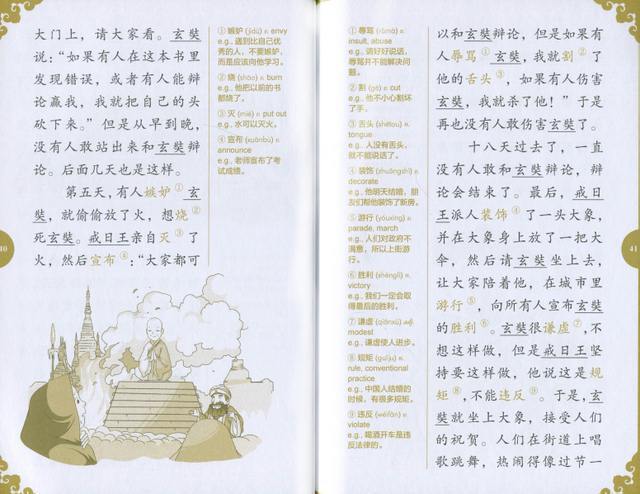 大门上，请大家看。玄奘
说：“如果有人在这本书里
发现错误，或者有人能辩
论赢我，我就把自己的头
砍下来。”但是从早到晚，
没有人敢站出来和玄奘辩
论。后面几天也是这样。
第五天，有人嫉妒①玄
奘，就偷偷放了火，想烧②
死玄奘。戒日王亲自灭③了
火，然后宣布④：“大家都可
① 嫉妒 (jídù) v. envy
e.g., 遇到比自己优
秀的人，不要嫉妒，
而是应该向他学习。
② 烧 (shāo) v. burn
e.g., 他把以前的书
都烧了。
③ 灭 (miè) v. put out
e.g., 水可以灭火。
④ 宣布 (xuānbù) v.
announce
e.g., 老师宣布了考
试成绩。
40
① 辱骂 (rǔmà) v.
insult, abuse
e.g., 请好好说话，
辱骂并不能解决问
题。
② 割 (gē) v. cut
e.g., 他不小心割坏
了手。
③ 舌头 (shétou) n.
tongue
e.g., 人没有舌头，
就不能说话了。
④ 装饰 (zhuāngshì) v.
decorate
e.g., 他明天结婚，朋
友们帮他装饰了新房。
⑤ 游行 (yóuxíng) v.
parade, march
e.g., 人们对政府不
满意，所以上街游
行。
⑥ 胜利 (shènglì) n.
victory
e.g., 我们一定会取
得最后的胜利。
⑦ 谦虚 (qiānxū) adj.
modest
e.g., 谦虚使人进步。
⑧ 规矩 (guīju) n.
rule, conventional
practice
e.g., 中国人结婚的
时候，有很多规矩。
⑨ 违反 (wéifǎn) v.
violate
e.g., 喝酒开车是违
反法律的。
以和玄奘辩论，但是如果有
人辱骂①玄奘，我就割②了
他的舌头③，如果有人伤害
玄奘，我就杀了他！”于是
再也没有人敢伤害玄奘了。
十八天过去了，一直
没有人敢和玄奘辩论，辩
论会结束了。最后，戒日
王派人装饰④了一头大象，
并在大象身上放了一把大
伞，然后请玄奘坐上去，
让大家陪着他，在城市里
游行⑤，向所有人宣布玄奘
的胜利⑥。玄奘很谦虚⑦，不
想这样做，但是戒日王坚
持要这样做，他说这是规
矩⑧，不能违反⑨。于是，玄
奘就坐上大象，接受人们
的祝贺。人们在街道上唱
歌跳舞，热闹得像过节一
41